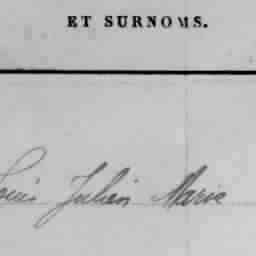 ET SURNOMS.
Louis Julien Marie